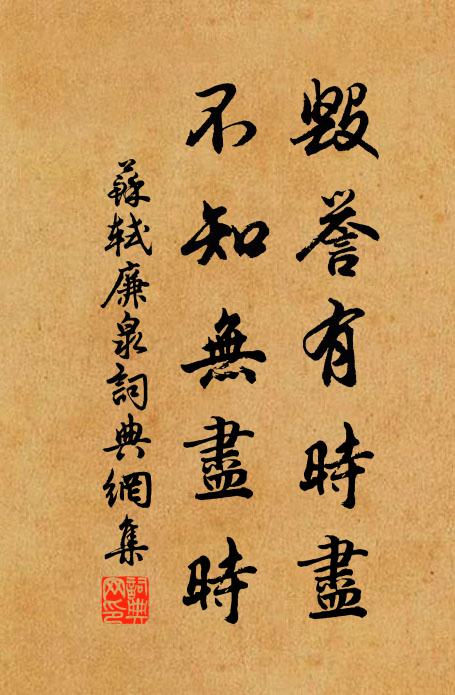 毀譽有時盡
不知無盡時
蘇軾廉泉詞典網集
詞典網印